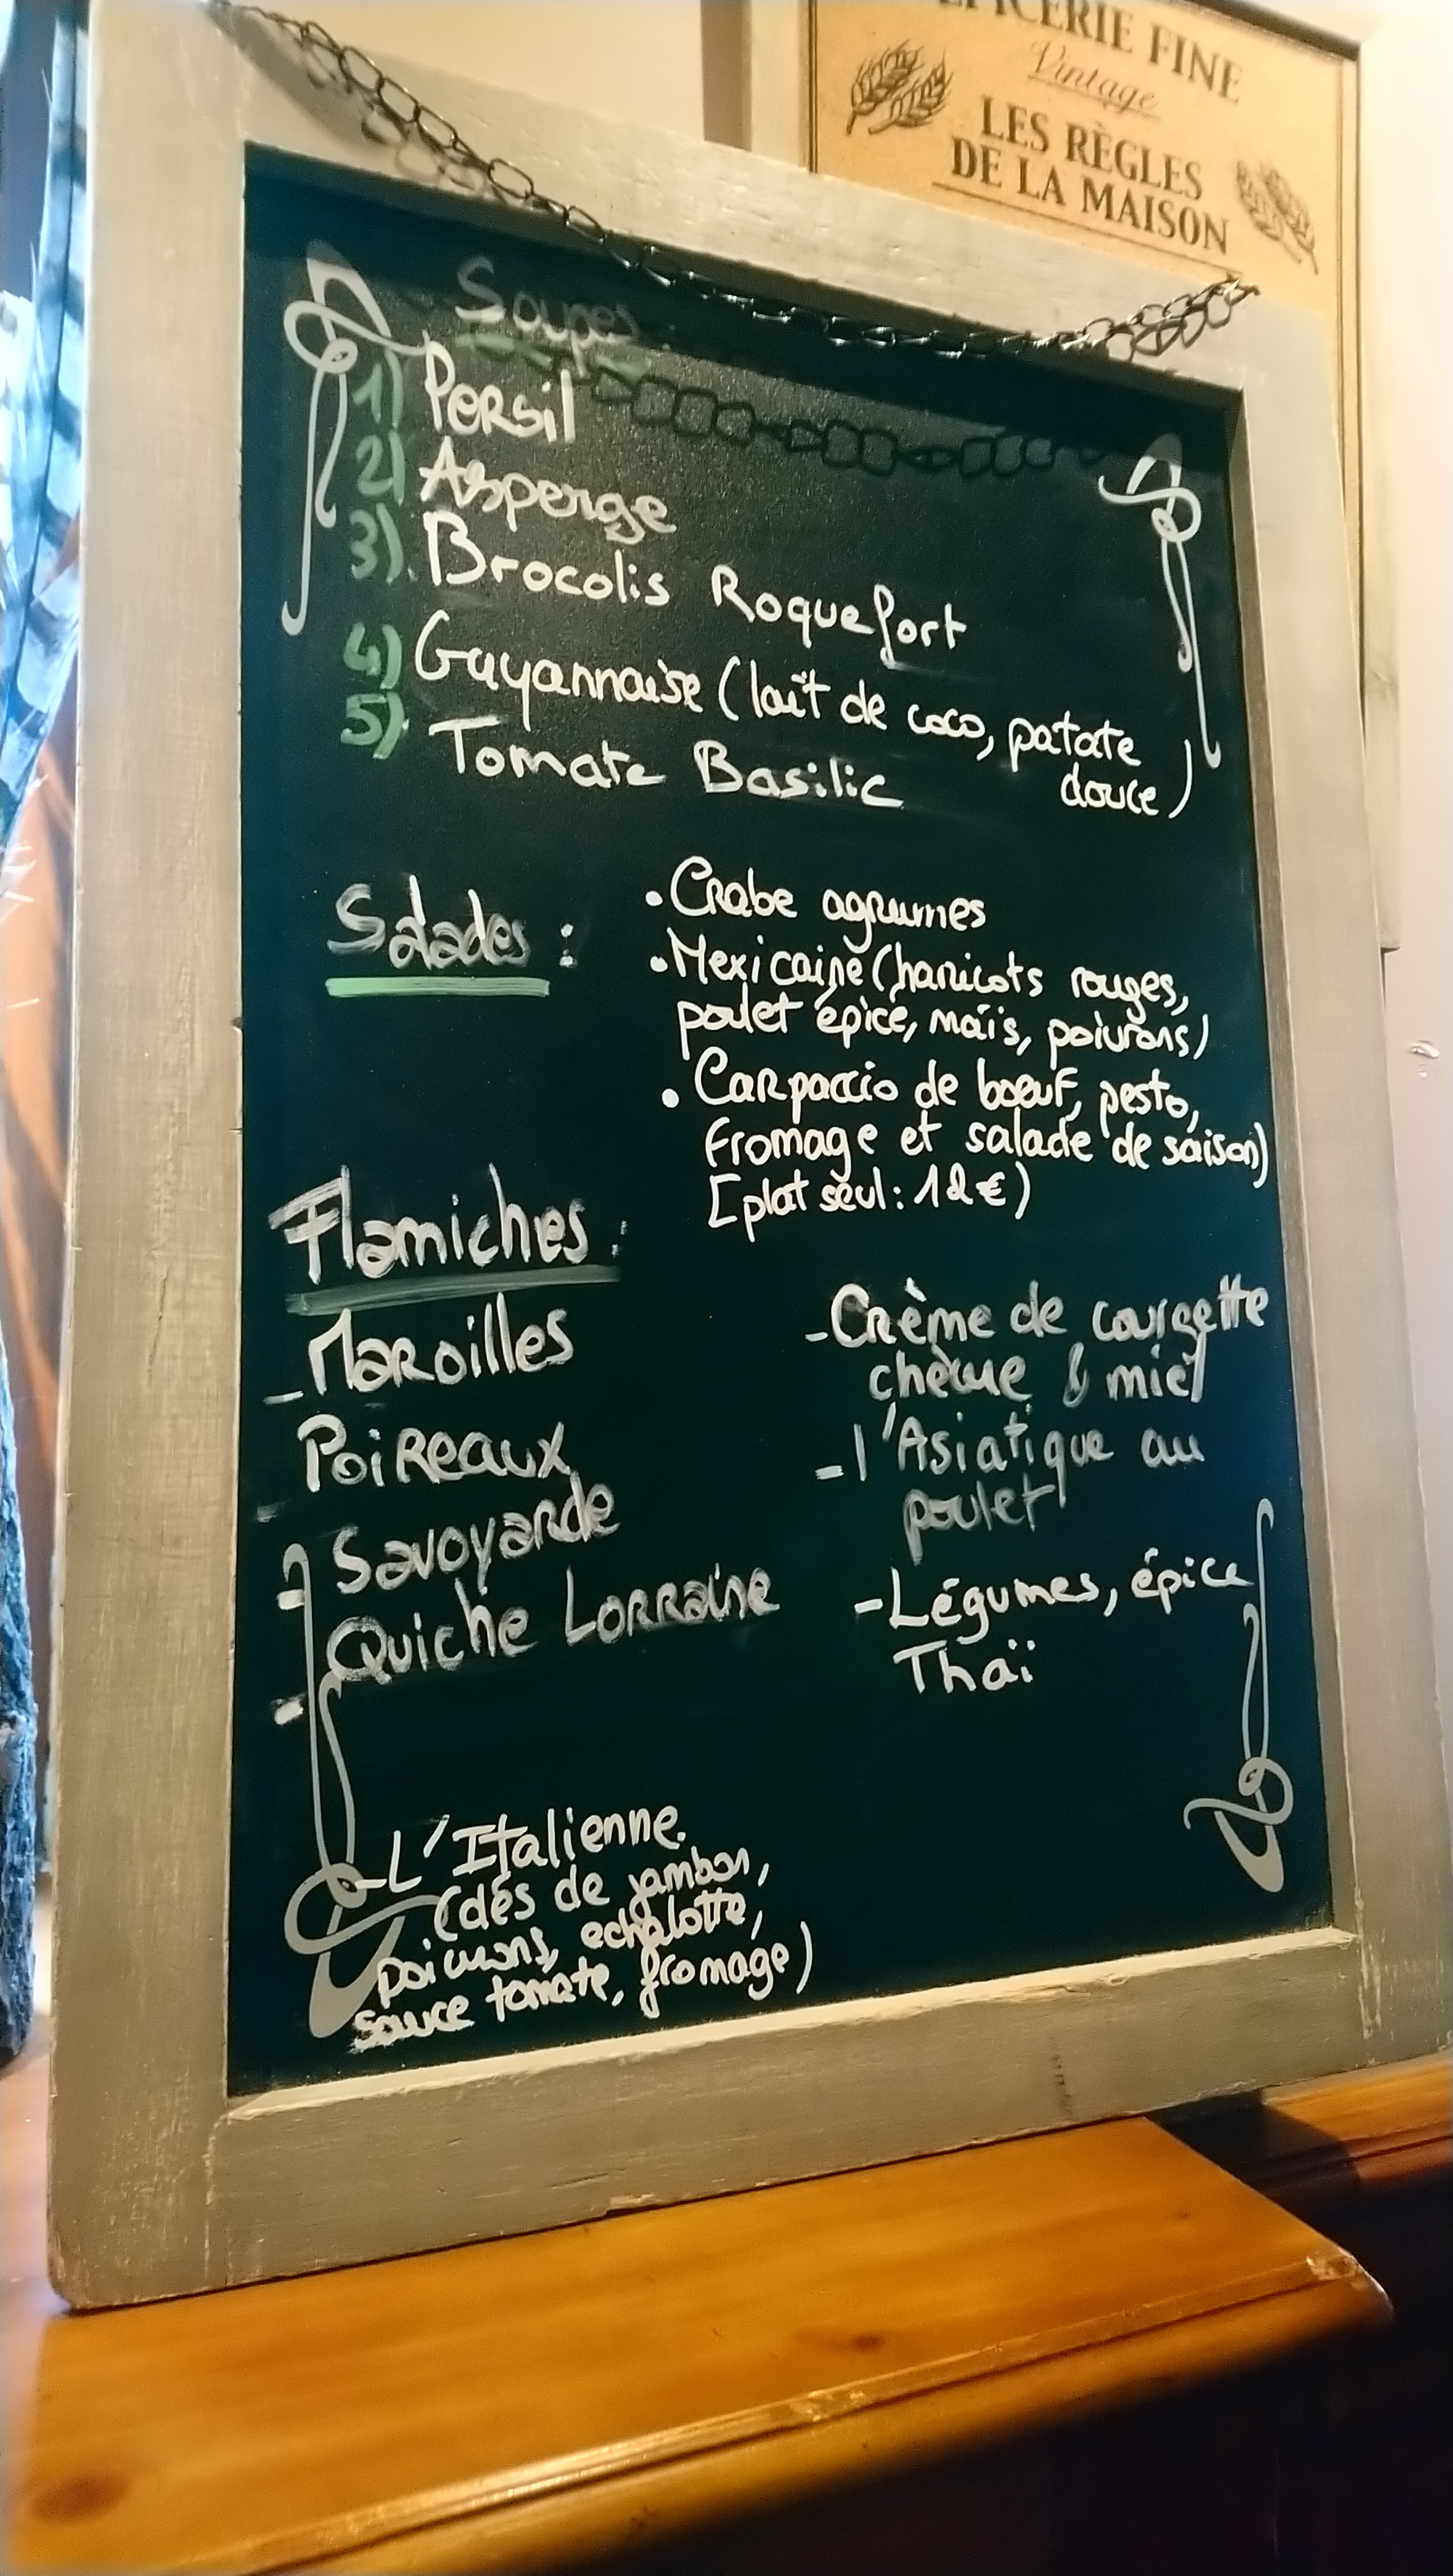 ÉPICERIE FINE
Vintage
LES RÈGLES
DE LA MAISON
Soupes :
1) Persil
2) Asperge
3) Brocolis Roquefort
4) Guyannaise (lait de coco, patate
douce)
5) Tomate Basilic
Salades :
• Crabe agrumes
• Mexicaine (haricots rouges,
poulet épice, maïs, poivrons)
• Carpaccio de boeuf, pesto,
fromage et salade de saison)
[plat seul : 12 €)
Flamiches :
- Maroilles
- Poireaux
- Savoyarde
- Quiche Lorraine
- L'Italienne
(dés de jambon,
poivrons, echalotte,
sauce tomate, fromage)
- Crème de courgette
chèvre & miel
- l'Asiatique au
poulet
- Légumes, épice
Thaï